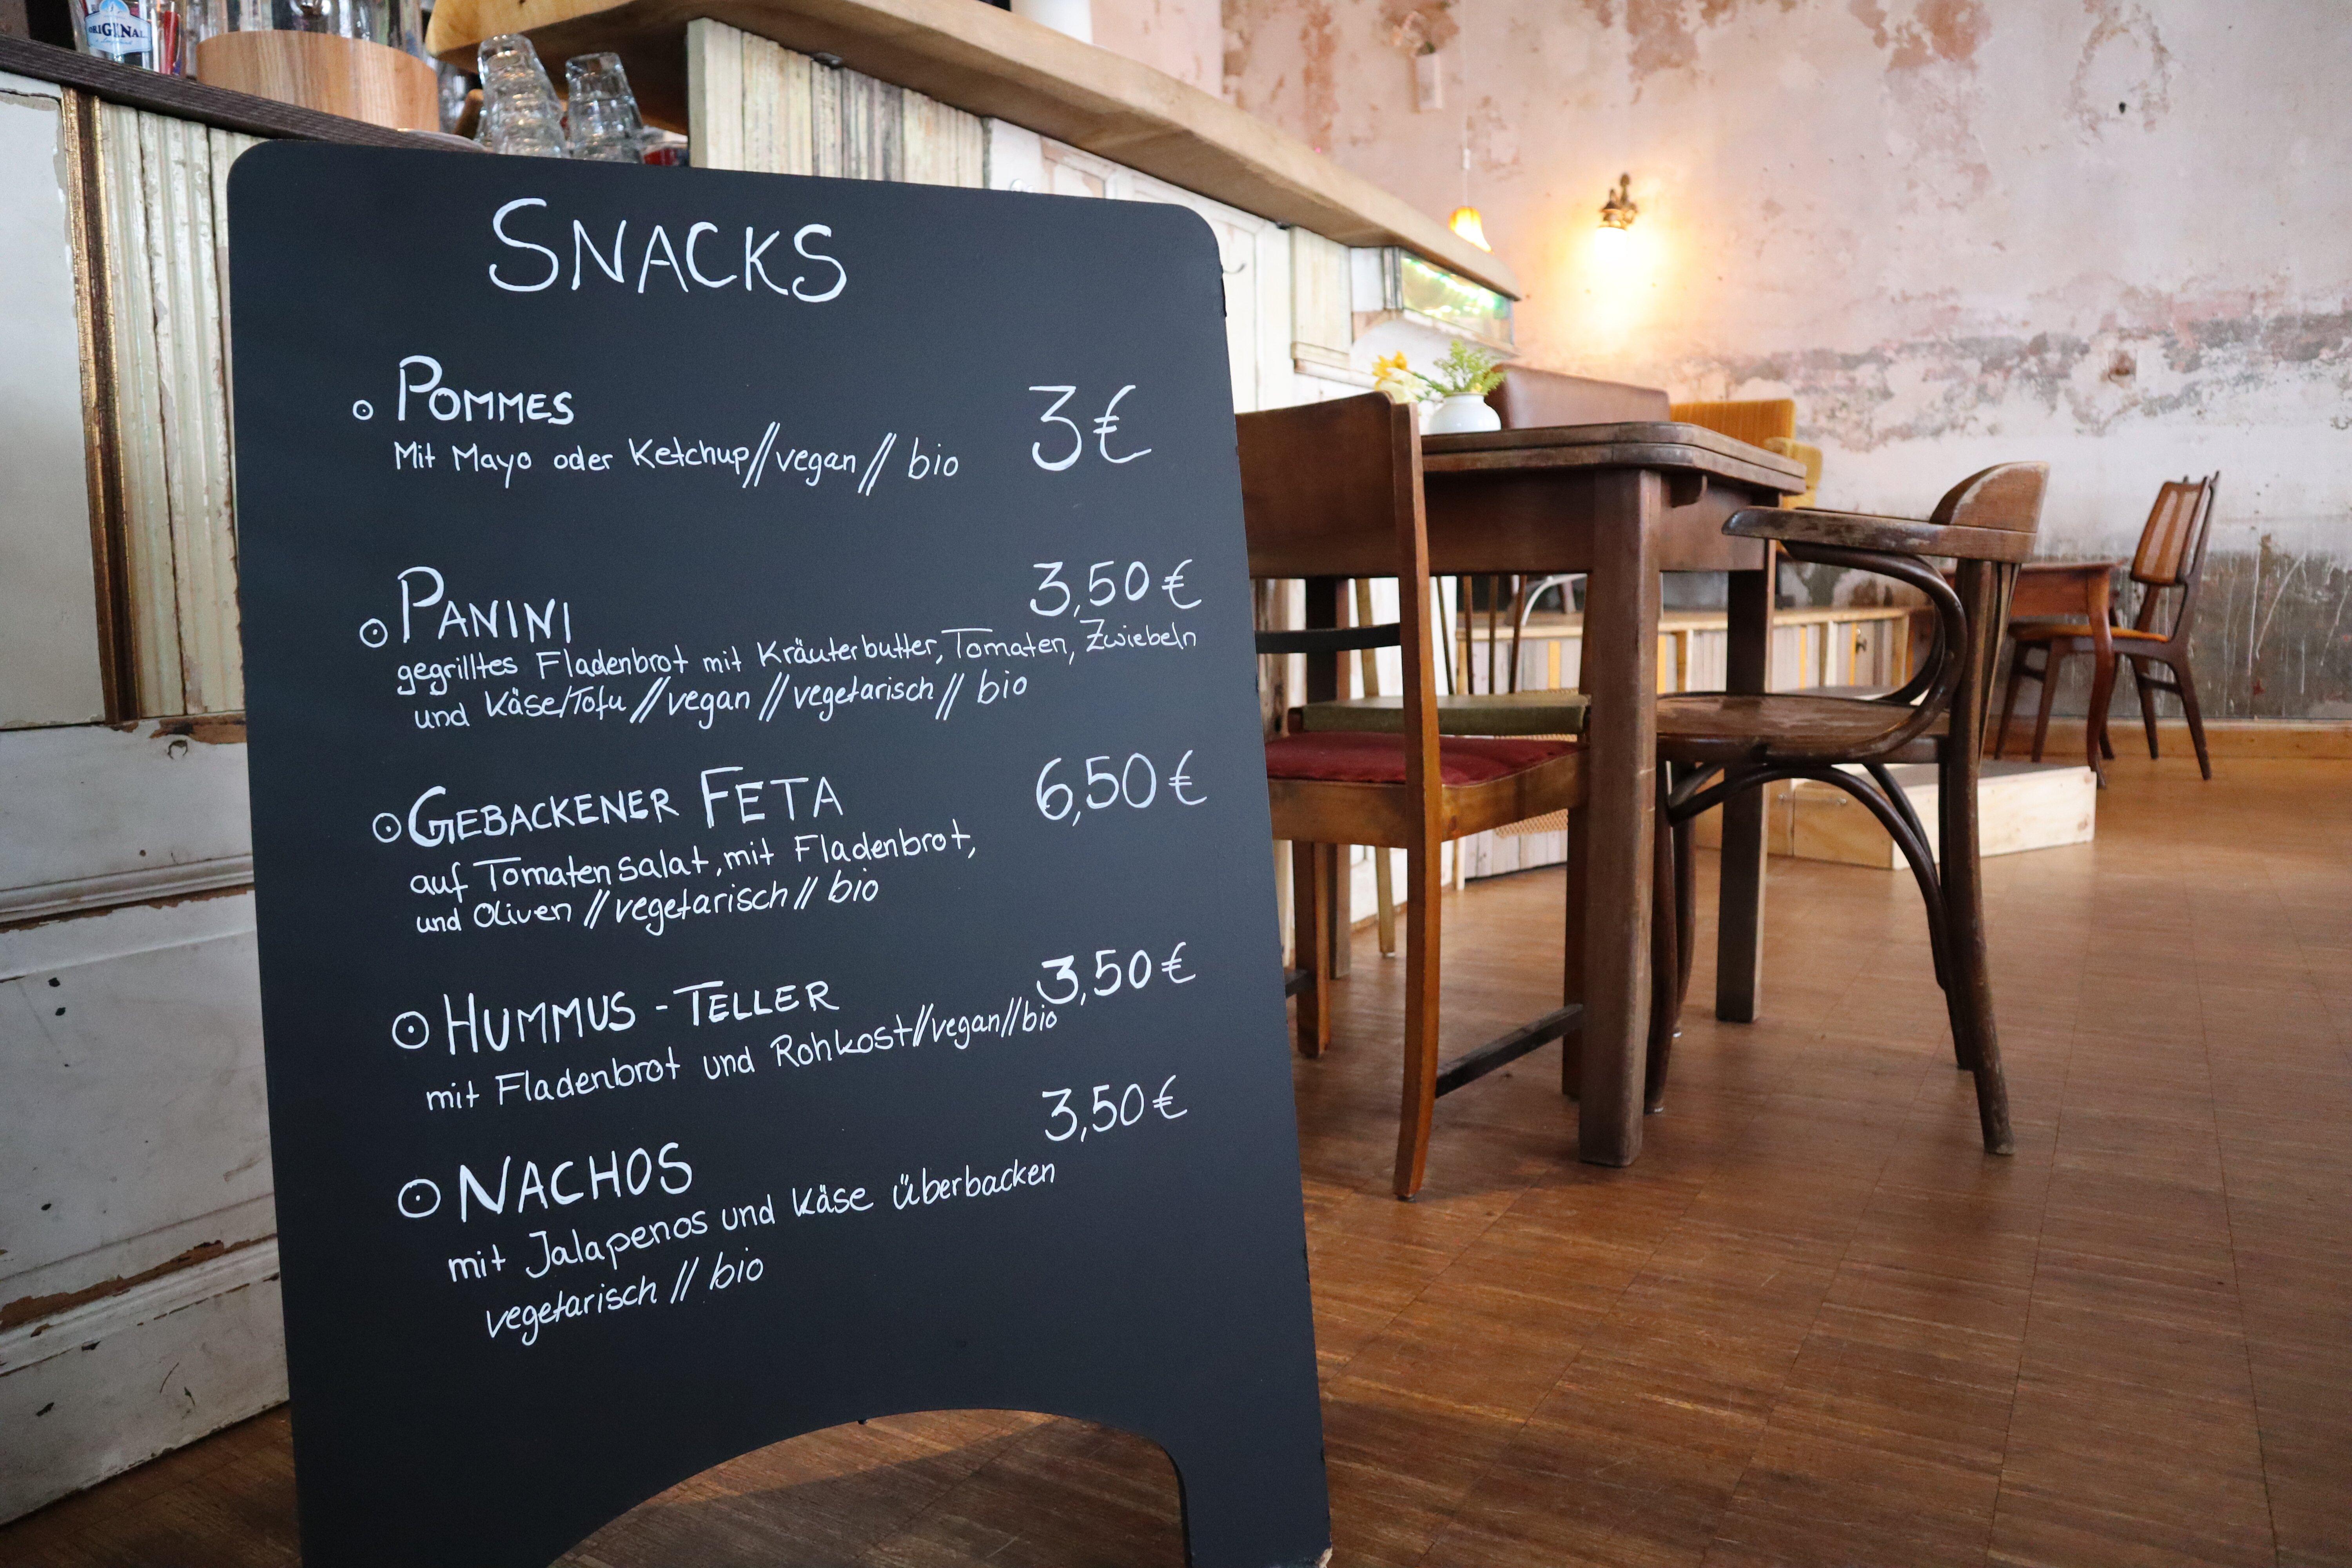 ORIGINAL
SNACKS
POMMES 3€
Mit Mayo oder Ketchup//vegan// bio
PANINI 3,50€
gegrilltes Fladenbrot mit Kräuterbutter, Tomaten, Zwiebeln
und Käse/Tofu //vegan //vegetarisch// bio
GEBACKENER FETA 6,50€
auf Tomatensalat, mit Fladenbrot,
und Oliven //vegetarisch// bio
HUMMUS - TELLER 3,50€
mit Fladenbrot und Rohkost//vegan//bio
NACHOS 3,50€
mit Jalapenos und Käse überbacken
vegetarisch // bio